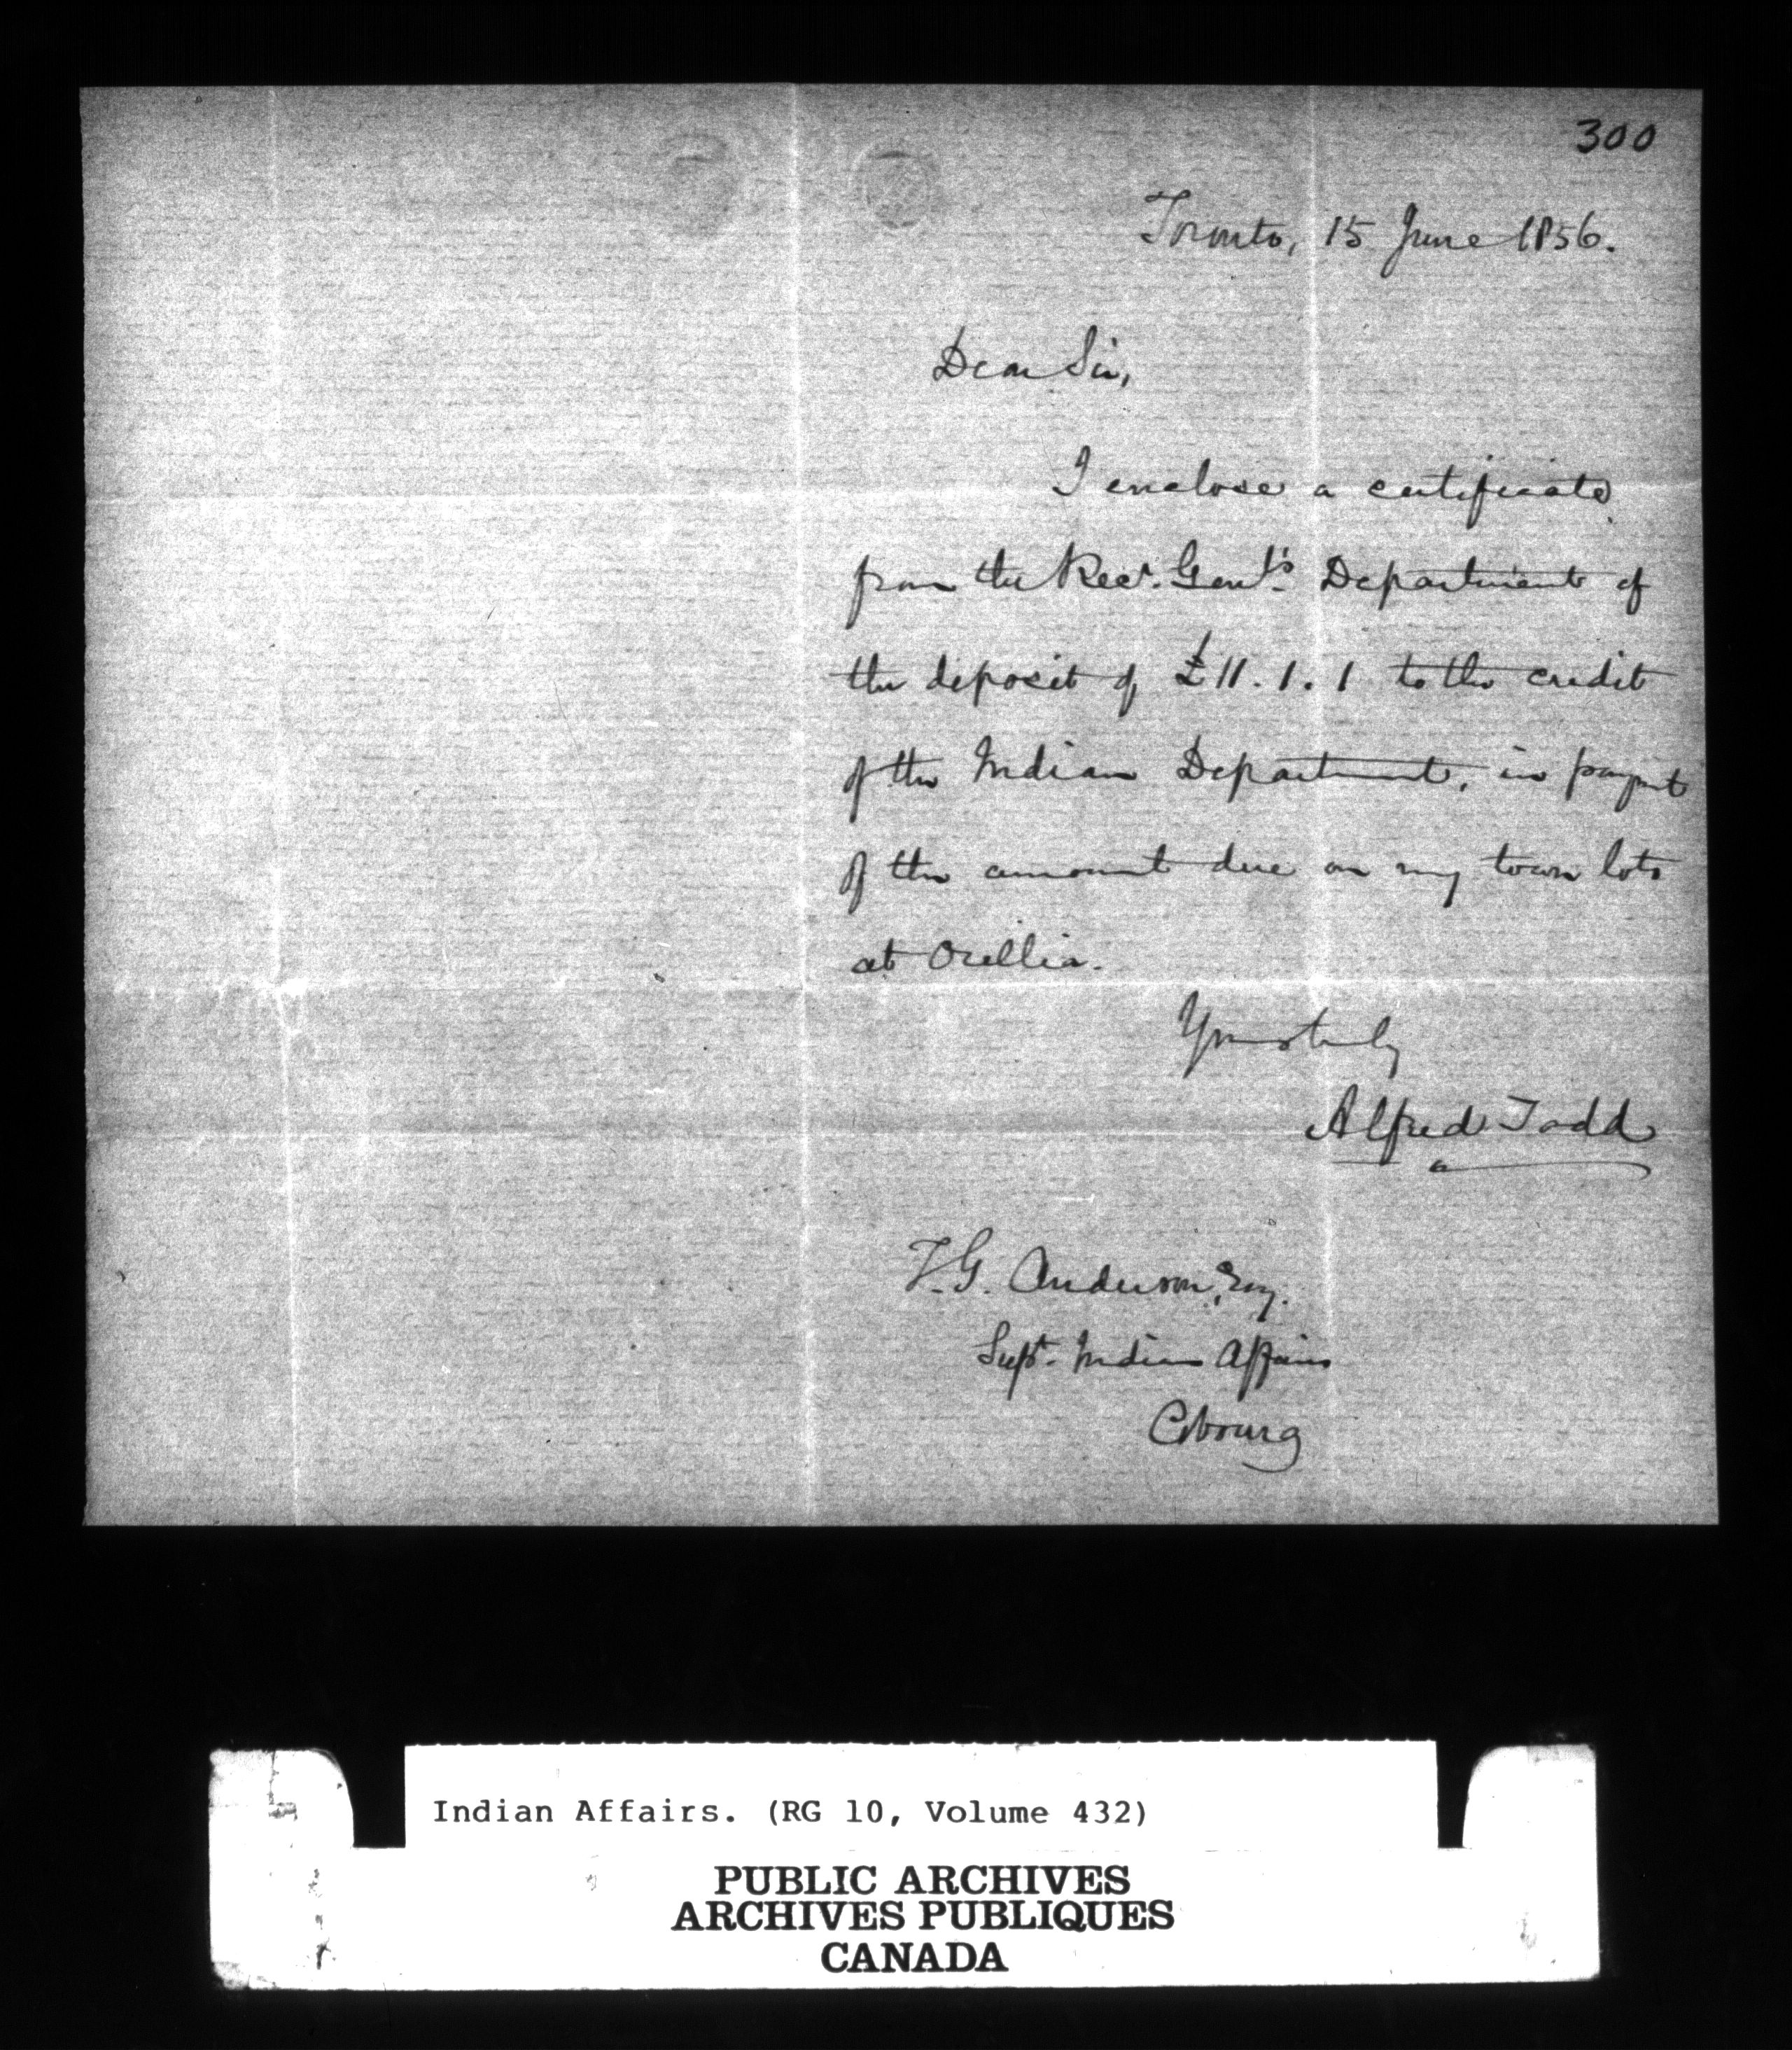 300
Toronto, 15 June 1856.
Dear Sir,
I enclose a certificate
from the Recr. Genl's Department of
the deposit of £11.1.1 to the credit
of the Indian Department, in paymt
of the amount due on my town lots
at Orillia.
Yours truly
Alfred Todd
T.G. Anderson, Esq.
Supt. Indian Affairs
Cobourg
Indian Affairs. (RG 10, Volume 432)
PUBLIC ARCHIVES
ARCHIVES PUBLIQUES
CANADA